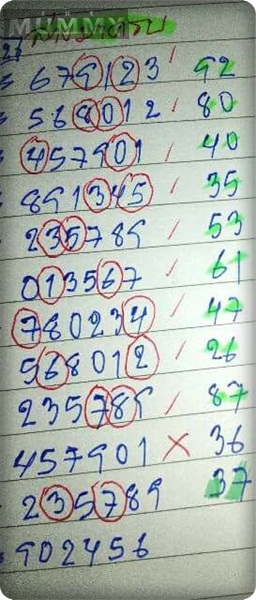 MUMMY
679123 / 92
568012 / 80
457901 / 40
891345 / 35
235789 / 53
013567 / 61
780234 / 47
568012 / 26
235789 / 87
457901 × 36
235789 37
902456